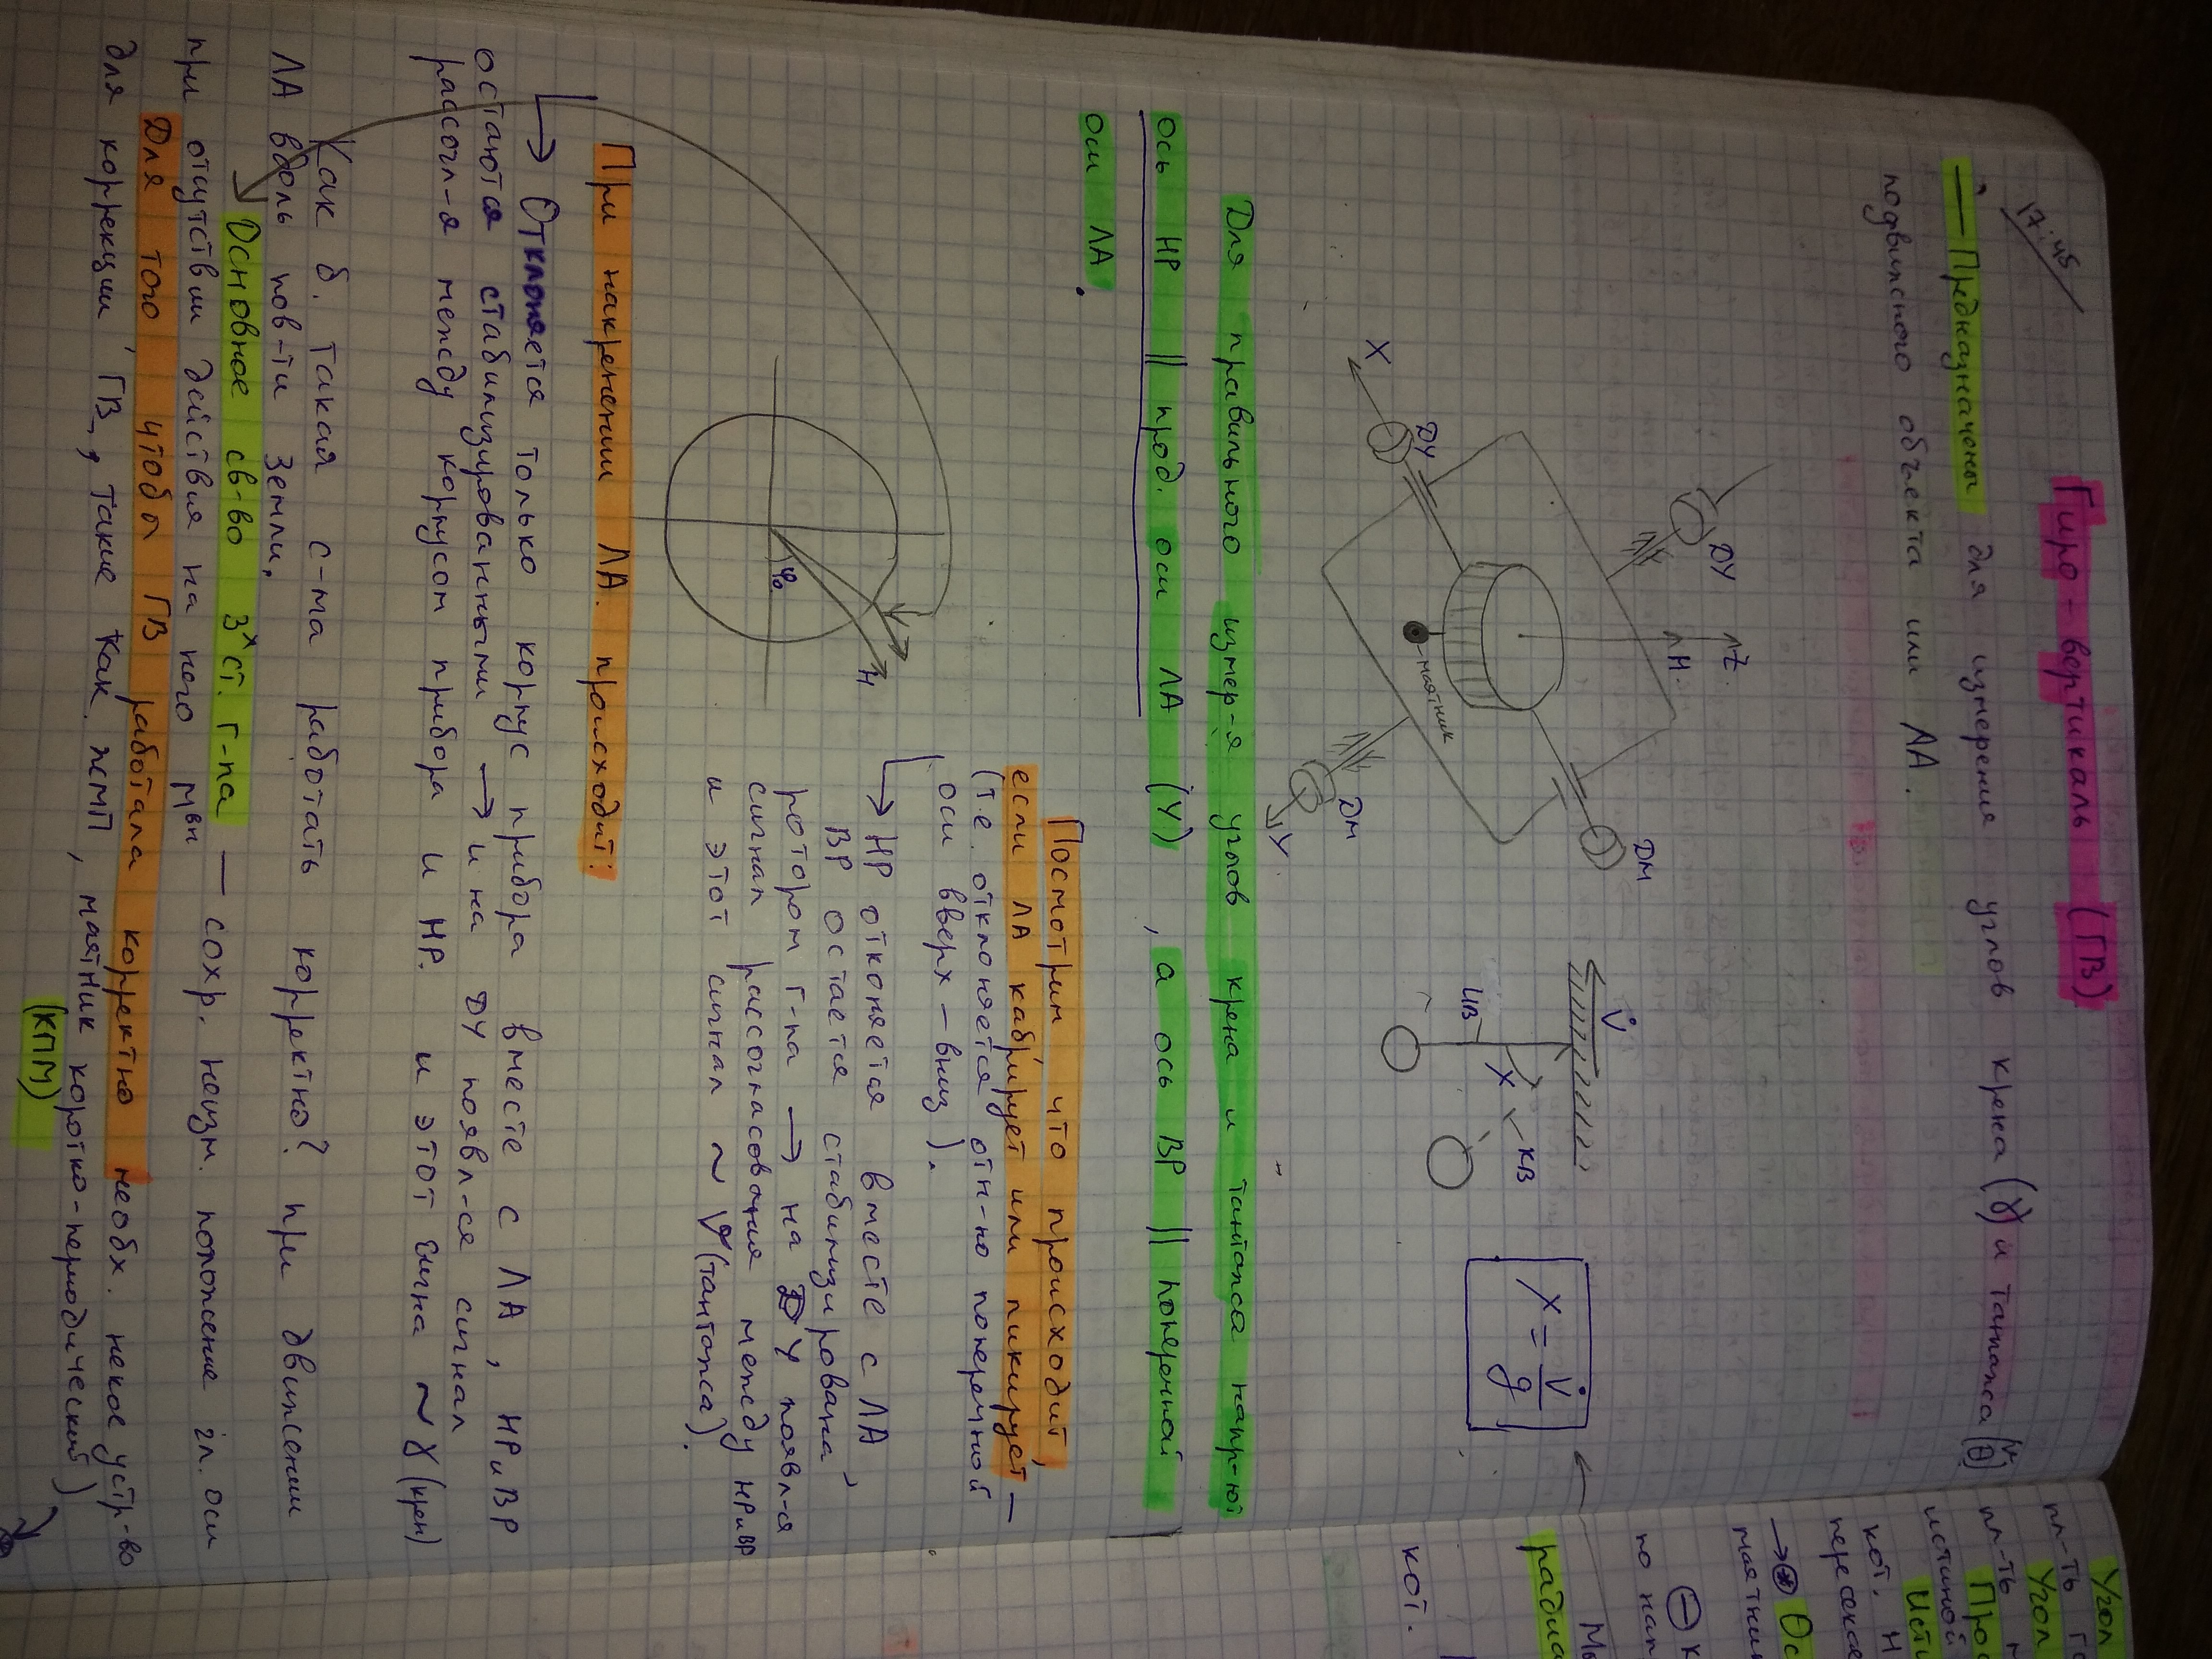 17.45
Гиро-вертикаль (ГВ)
— Предназначены для измерения углов крена (γ) и тангажа
подвижного объекта или ЛА.
ДУ
Z
H
ДМ
X
ДУ
маятник
ДМ
Y
V̇
ИВ
χ
КВ
χ = V̇/g
Для правильного измер-я углов крена и тангажа напр-ют
ось НР || прод. оси ЛА (Y), а ось ВР || поперечной
оси ЛА.
Посмотрим что происходит,
если ЛА кабрирует или пикирует —
(т.е. отклоняется отн-но поперечной
оси вверх – вниз).
→ НР отконяется вместе с ЛА,
ВР остается стабилизирована
ротором г-па → на ДУ появл-я
сигнал рассогласования между НР и ВР
и этот сигнал ~ ϑ (тангажа).
φ₀
H
При накренении ЛА происходит:
→ Отклоняется только корпус прибора вместе с ЛА, НР и ВР
остаются стабилизированными → и на ДУ появл-ся сигнал
рассогл-я между корпусом прибора и НР. и этот сигнa ~ γ (крен)
Как б. такая с-ма работать корректно? при движении
ЛА вдоль пов-ти Земли.
→ Основное св-во 3х ст. г-па — сохр. неизм. положение гл. оси
при отсутствии действия на него Мвн
Для того, чтобы ГВ работала корректно необх. некое устр-во
для коррекции ГВ, такие как ЖМП, маятник коротко-периодический)
(КПМ)
Угол
пл-ть
Угол
пл-ть
истиной
кот.
пересека
маятни
по нап
радиа
кот.